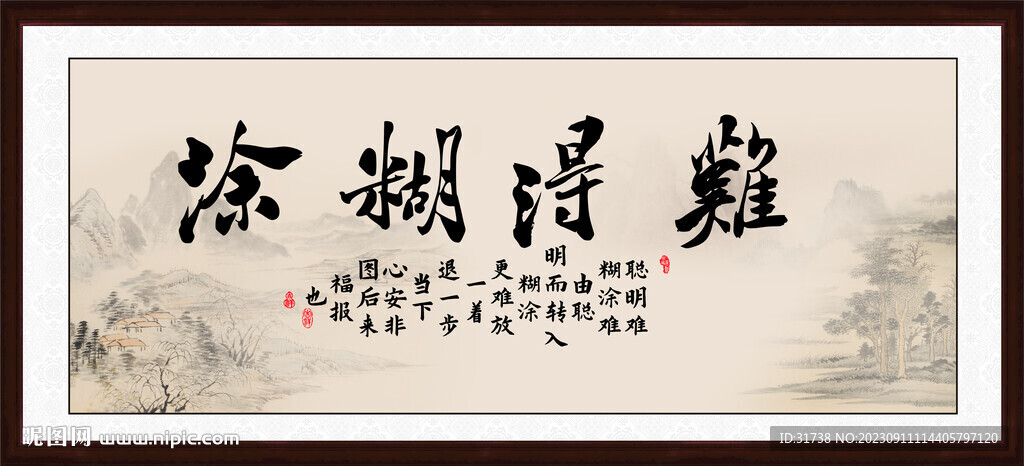 難得糊涂
聪明难
糊涂难
由聪
明而转入
糊涂
更难放
一着
退一步
当下
心安非
图后来
福报
也
昵图网 www.nipic.com
ID:31738 NO:20230911114405797120